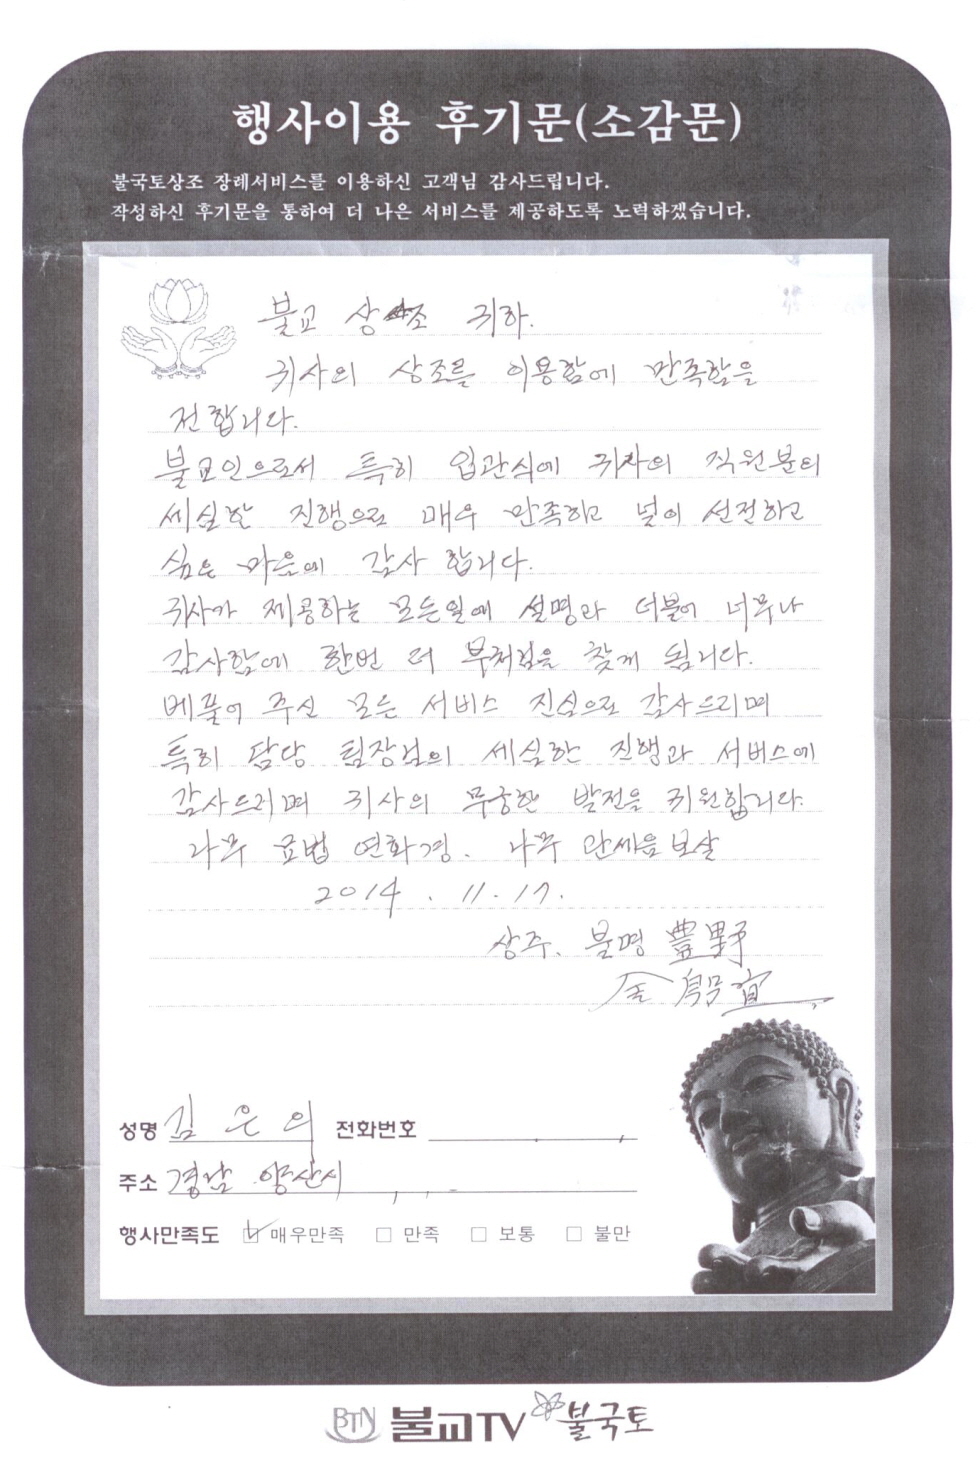 행사이용 후기문(소감문)
불국토상조 장례서비스를 이용하신 고객님 감사드립니다.
작성하신 후기문을 통하여 더 나은 서비스를 제공하도록 노력하겠습니다.
불교 상조 귀하.
귀사의 상조를 이용함에 만족함을
전합니다.
불교인으로서 특히 입관식에 귀사의 직원분의
세실한 진행으로 매우 만족하고 널이 선전하고
싶은 마음에 감사 합니다.
귀사가 제공하는 모든일에 설명과 더불어 너무나
감사함에 한번 더 부처님을 찾게 됩니다.
베풀어 주신 모든 서비스 진심으로 감사드리며
특히 담당 팀장님의 세실한 진행과 서비스에
감사드리며 귀사의 무궁한 발전을 귀원합니다.
나무 묘법 연화경. 나무 관세음보살
2014. 11. 17.
상주. 불명 豊野
金 殷宜
성명 김은의 전화번호
주소 경남 양산시
행사만족도 매우만족 만족 보통 불만
BTN 불교TV 불국토